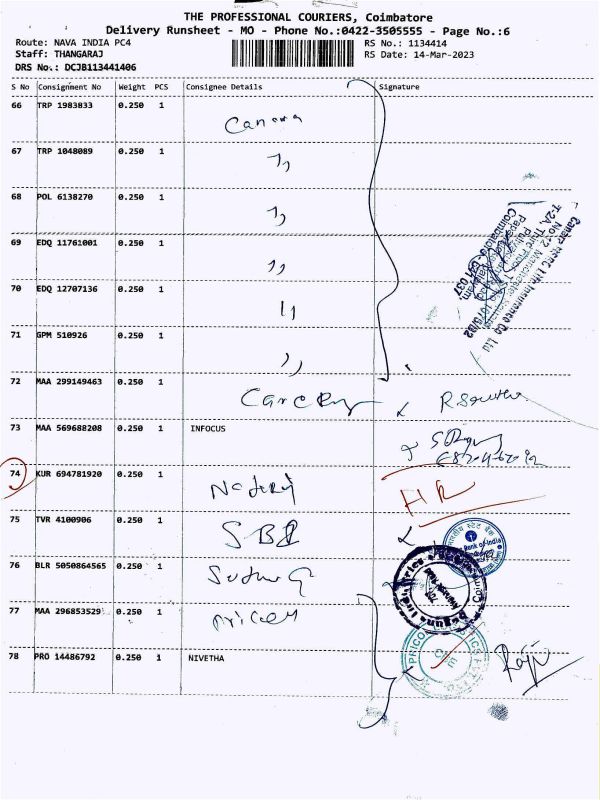 THE PROFESSIONAL COURIERS, Coimbatore
Delivery Runsheet - MO - Phone No.:0422-3505555 - Page No.:6
Route: NAVA INDIA PC4 RS No.: 1134414
Staff: THANGARAJ RS Date: 14-Mar-2023
DRS No.: DCJB113441406
S No Consignment No Weight PCS Consignee Details Signature
66 TRP 1983833 0.250 1 Canara
67 TRP 1048089 0.250 1 ,,
68 POL 6138270 0.250 1 ,,
69 EDQ 11761001 0.250 1 ,,
70 EDQ 12707136 0.250 1 ,,
71 GPM 510926 0.250 1 ,,
72 MAA 299149463 0.250 1
73 MAA 569688208 0.250 1 INFOCUS
74 KUR 694781920 0.250 1 HR
75 TVR 4100906 0.250 1 SBI
76 BLR 5050864565 0.250 1
77 MAA 296853529 0.250 1 Pricol
78 PRO 14486792 0.250 1 NIVETHA
Life Insurance Co. Ltd
भारतीय स्टेट बैंक
Bank of India
PRICO